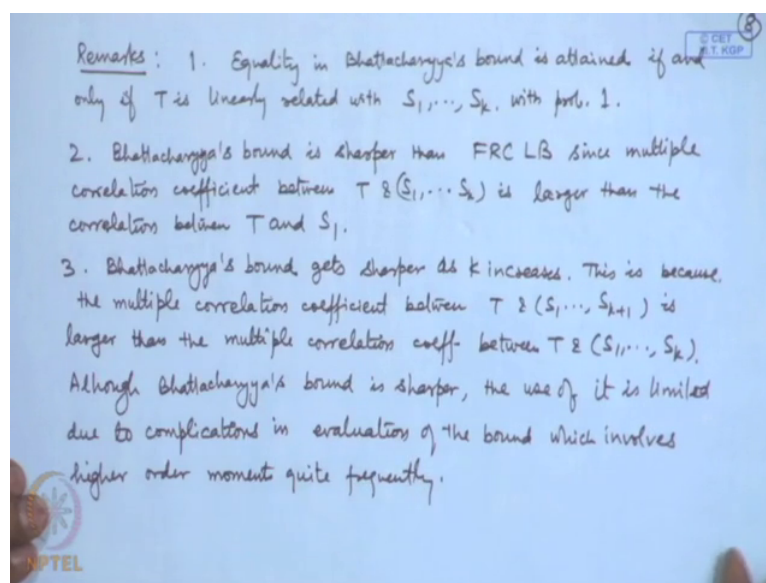 8
© CET
I.I.T. KGP
Remarks : 1. Equality in Bhattacharyya's bound is attained if and
only if T is linearly related with S1, ..., Sk, with prob. 1.
2. Bhattacharyya's bound is sharper than FRC LB since multiple
correlation coefficient between T & (S1, ... Sk) is larger than the
correlation between T and S1.
3. Bhattacharyya's bound gets sharper as k increases. This is because
the multiple correlation coefficient between T & (S1, ..., Sk+1) is
larger than the multiple correlation coeff- between T & (S1, ..., Sk).
Although Bhattacharyya's bound is sharper, the use of it is limited
due to complications in evaluation of the bound which involves
higher order moments quite frequently.
NPTEL